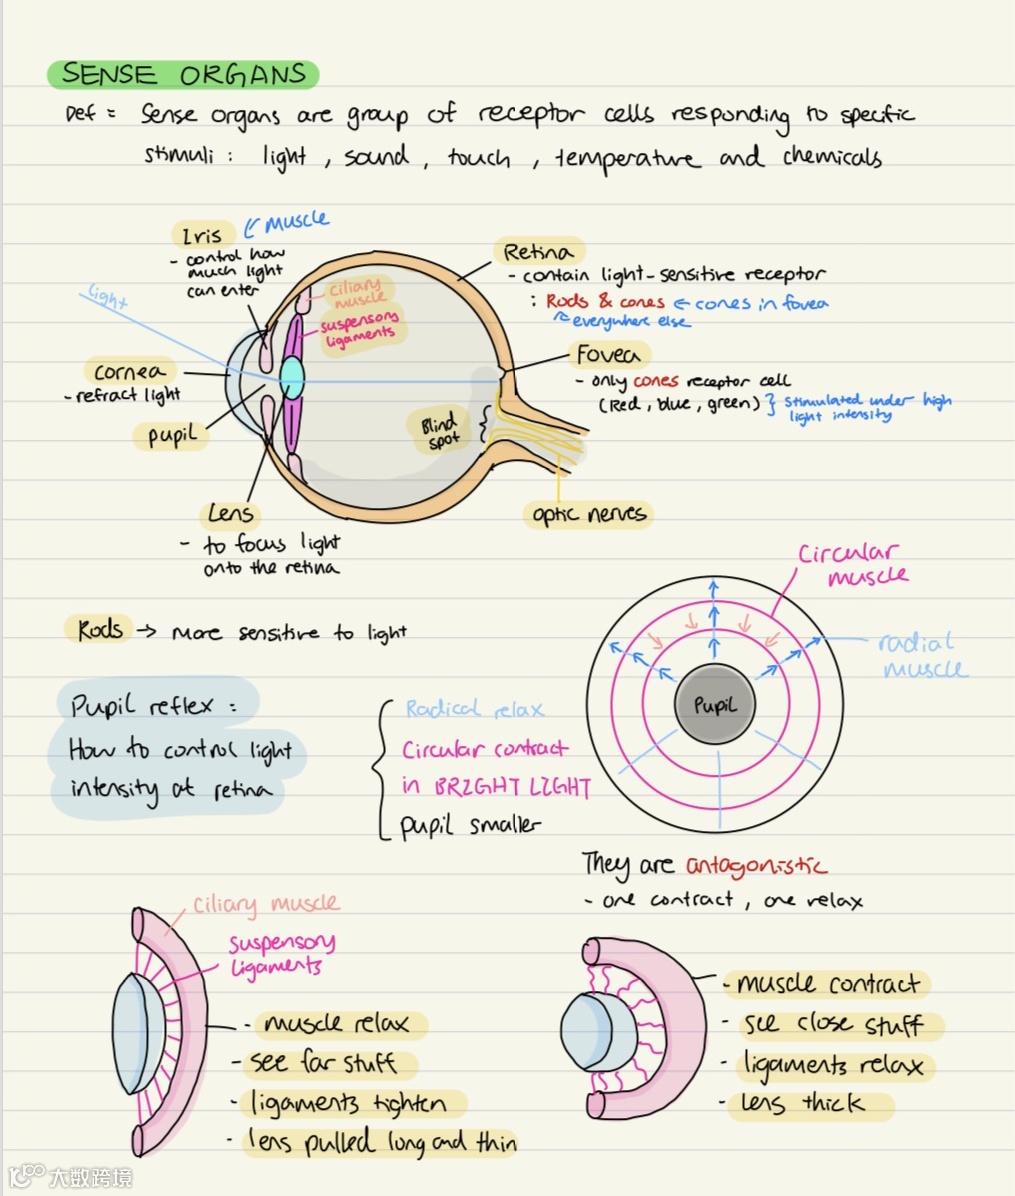 SENSE ORGANS
Def = Sense organs are group of receptor cells responding to specific
stimuli : light , sound , touch , temperature and chemicals
Iris
muscle
- control how
much light
can enter
light
ciliary
muscle
suspensory
ligaments
Retina
- contain light-sensitive receptor
: Rods & cones ← cones in fovea
everywhere else
Cornea
- refract light
Fovea
- only cones receptor cell
(Red, blue, green) } stimulated under high
light intensity
pupil
Blind
spot
Lens
- to focus light
onto the retina
optic nerves
Rods → more sensitive to light
Circular
muscle
radial
muscle
Pupil
Pupil reflex :
How to control light
intensity at retina
Radical relax
Circular contract
in BRIGHT LIGHT
pupil smaller
They are antagonistic
- one contract , one relax
ciliary muscle
suspensory
ligaments
- muscle relax
- see far stuff
- ligaments tighten
- lens pulled long and thin
- muscle contract
- see close stuff
- ligaments relax
- lens thick
大数跨境